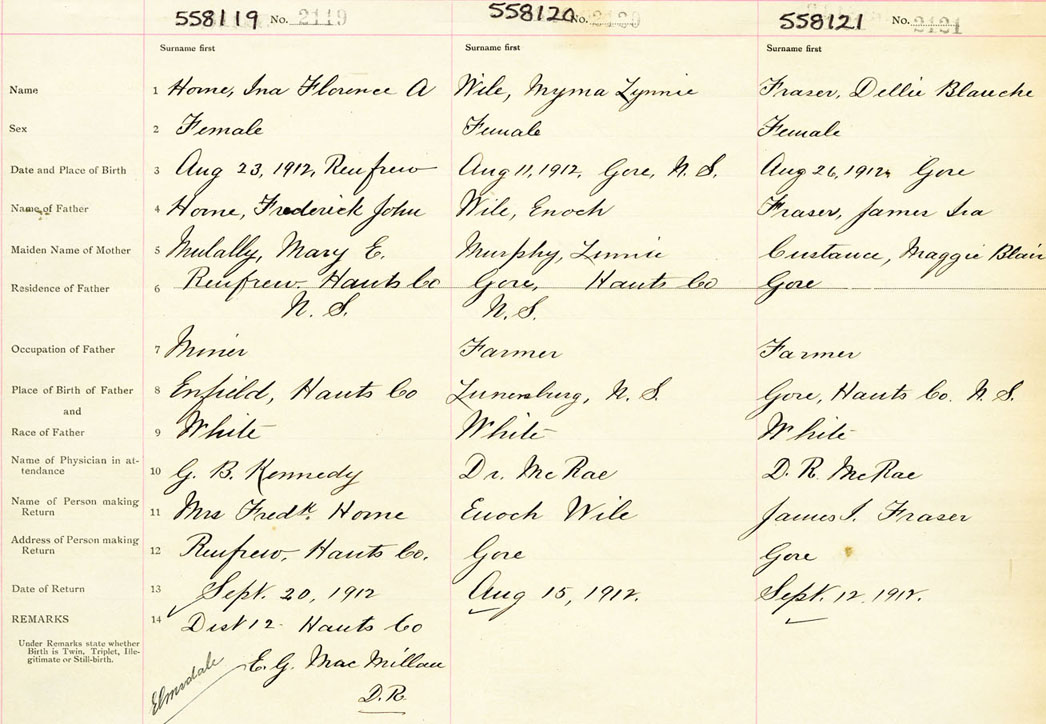 558119 No. 2119 558120 No. 2120 558121 No. 2121
Surname first Surname first Surname first
Name 1 Horne, Ina Florence A Wile, Myrna Lynnie Fraser, Dellie Blanche
Sex 2 Female Female Female
Date and Place of Birth 3 Aug 23, 1912, Renfrew Aug 11, 1912, Gore, N. S. Aug 26, 1912, Gore
Name of Father 4 Horne, Frederick John Wile, Enoch Fraser, James Ira
Maiden Name of Mother 5 Mulally, Mary E. Murphy, Linnie Custance, Maggie Blair
Residence of Father 6 Renfrew, Hants Co Gore, Hants Co Gore
N. S. N. S.
Occupation of Father 7 Miner Farmer Farmer
Place of Birth of Father 8 Enfield, Hants Co Lunenburg, N. S. Gore, Hants Co. N. S.
and
Race of Father 9 White White White
Name of Physician in at-
tendance 10 G. B. Kennedy Dr. McRae D. R. McRae
Name of Person making
Return 11 Mrs Fredk. Horne Enoch Wile James I. Fraser
Address of Person making
Return 12 Renfrew, Hants Co. Gore Gore
Date of Return 13 Sept. 20, 1912 Aug 15, 1912. Sept. 12, 1912.
REMARKS 14 Dist 12 Hants Co
Under Remarks state whether
Birth is Twin, Triplet, Ille-
gitimate or Still-birth.
Elmsdale E. G. MacMillan
D. R.